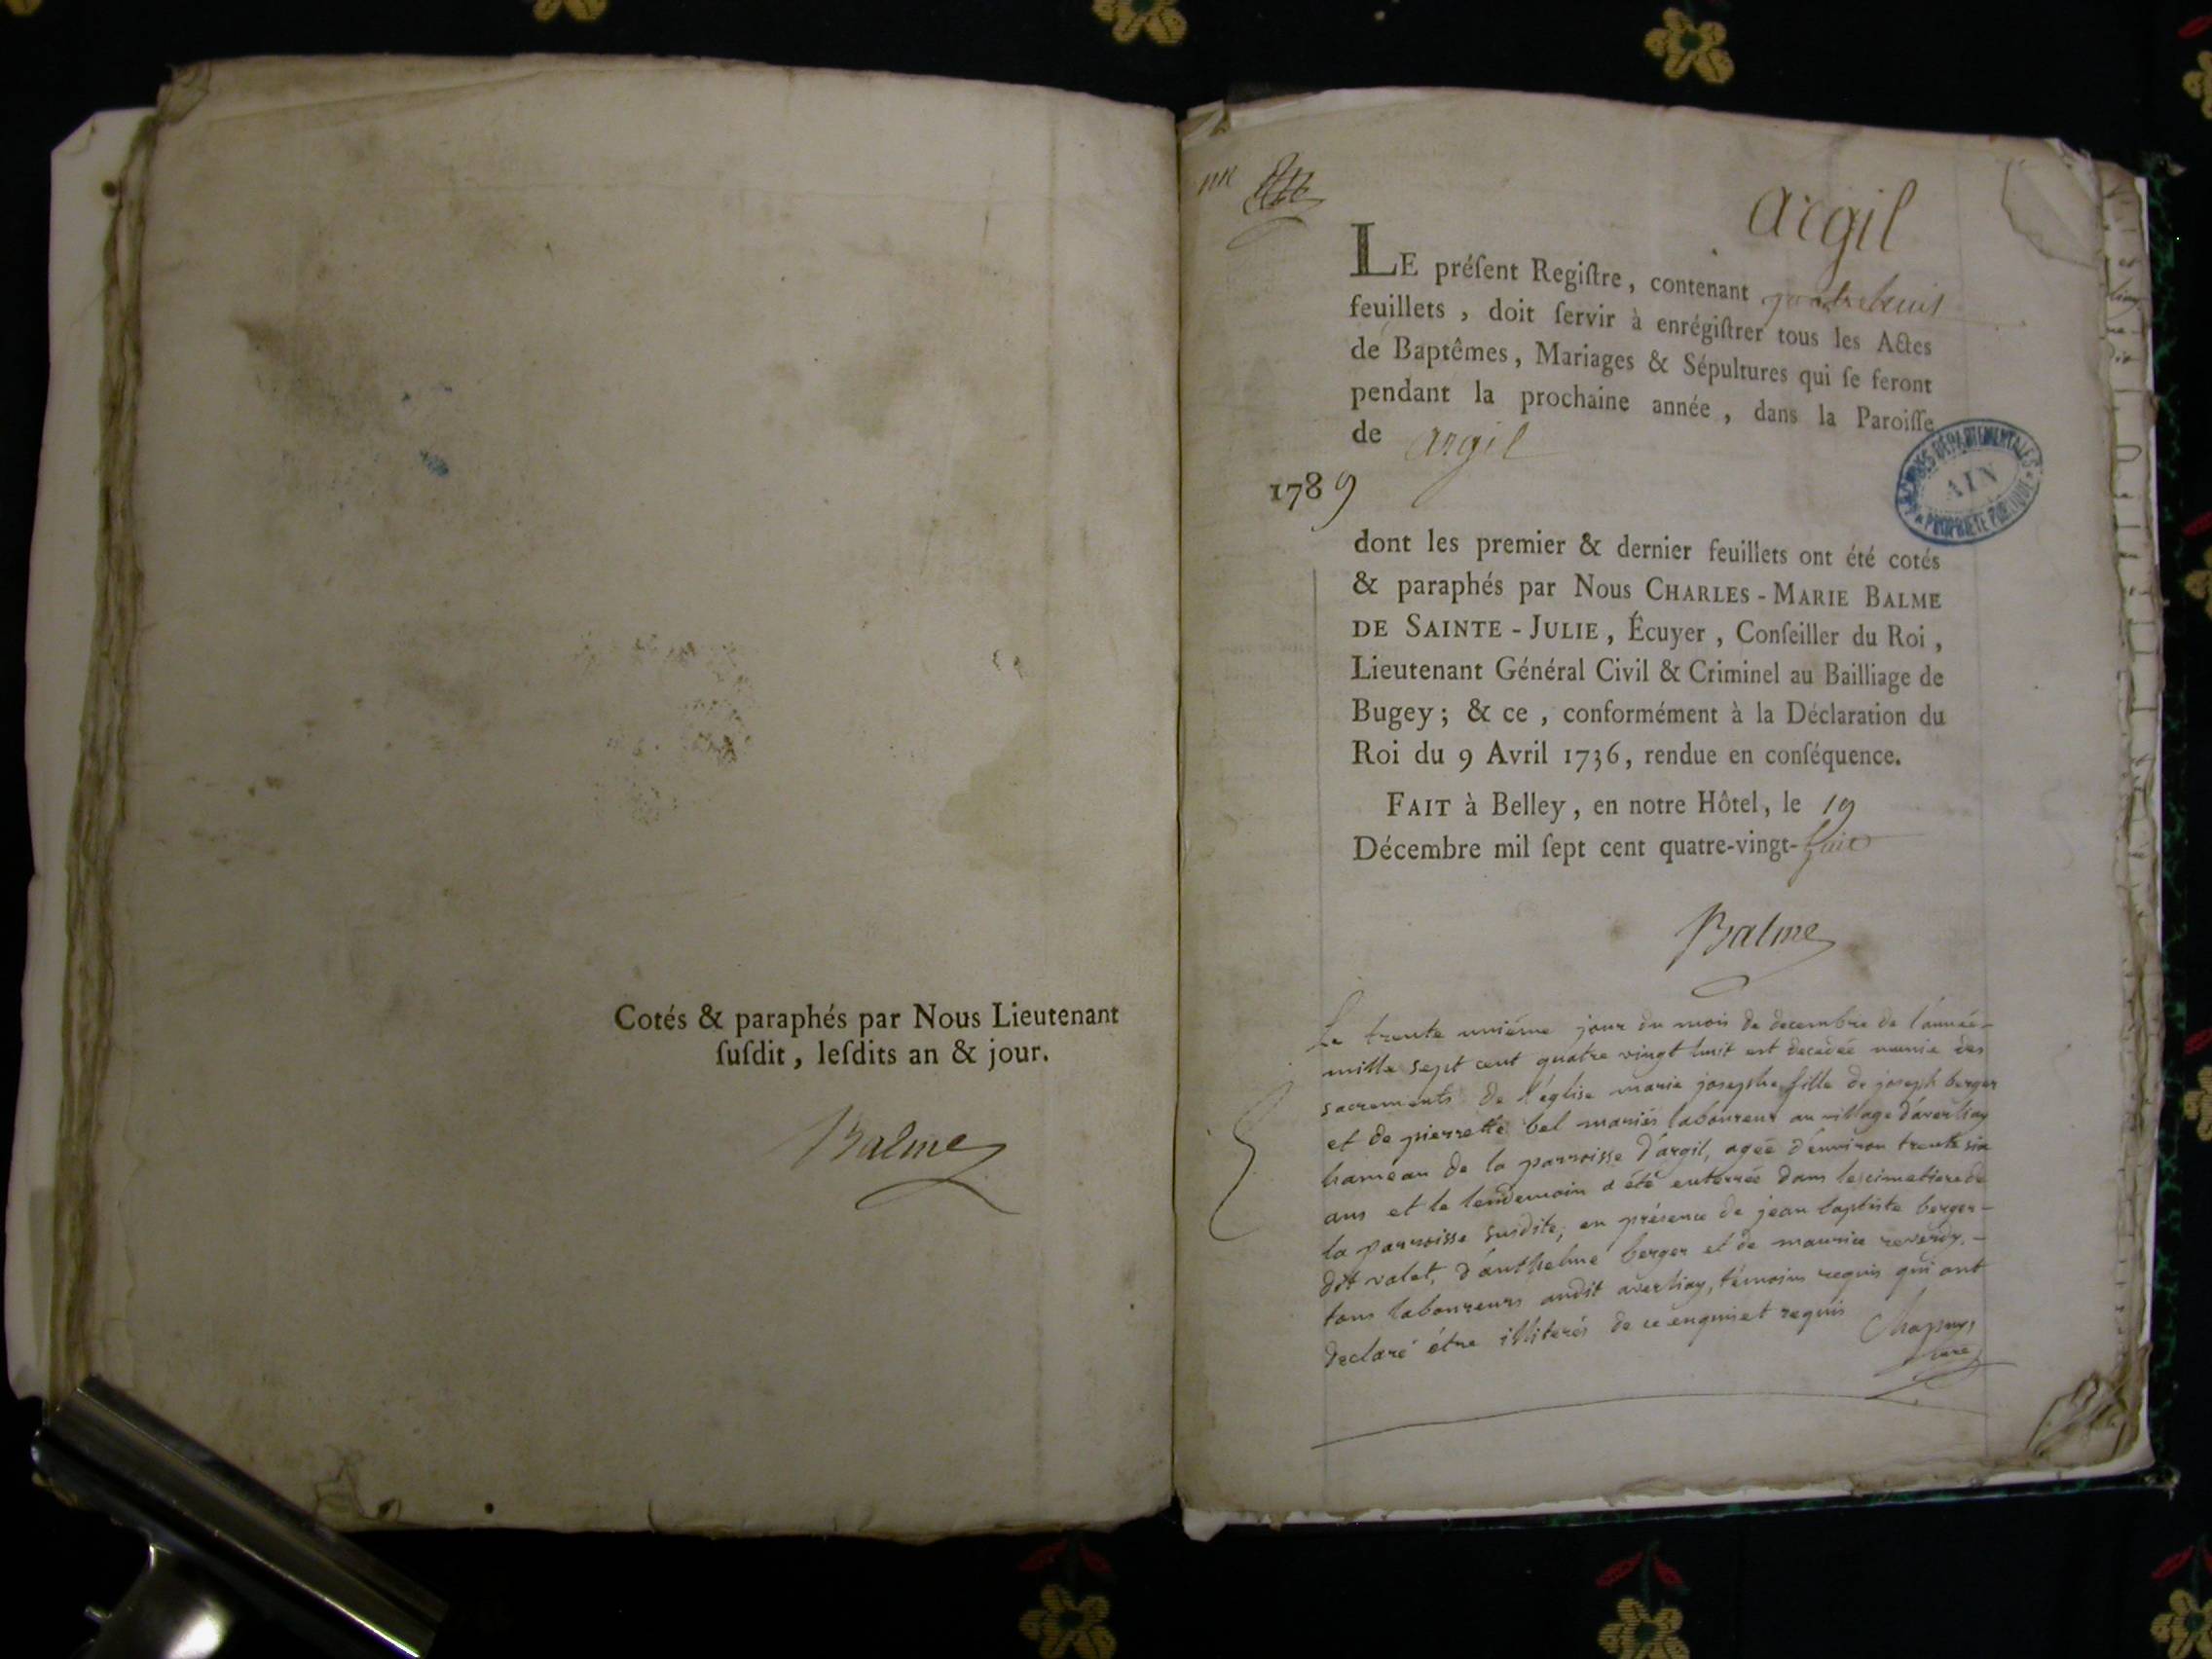 Cotés & paraphés par Nous Lieutenant
ſuſdit, leſdits an & jour.
Balme
argil
LE préſent Regiſtre, contenant
feuillets, doit ſervir à enrégiſtrer tous les Actes
de Baptêmes, Mariages & Sépultures qui ſe feront
pendant la prochaine année, dans la Paroiſſe
de argil
1789
ARCHIVES DÉPARTEMENTALES
AIN
PROPRIÉTÉ PUBLIQUE
dont les premier & dernier feuillets ont été cotés
& paraphés par Nous CHARLES-MARIE BALME
DE SAINTE-JULIE, Écuyer, Conſeiller du Roi,
Lieutenant Général Civil & Criminel au Bailliage de
Bugey; & ce, conformément à la Déclaration du
Roi du 9 Avril 1736, rendue en conſéquence.
FAIT à Belley, en notre Hôtel, le 19
Décembre mil ſept cent quatre-vingt-huit
Balme
Le trente unième jour du mois de decembre de l'année
mille sept cent quatre vingt huit est decedée munie des
sacrements de l'église marie josephe fille de joseph berger
et de pierrette bel mariés laboureur au village d'averliay
hameau de la parroisse d'argil, agée d'environ trente six
ans et le lendemain a été enterrée dans le cimetiere de
la parroisse susdite, en présence de jean baptiste berger
dit valet, d'anthelme berger et de maurice reverdy,
tous laboureurs audit averliay, témoins requis qui ont
declaré être illiterés de ce enquis et requis Chapuys
curé